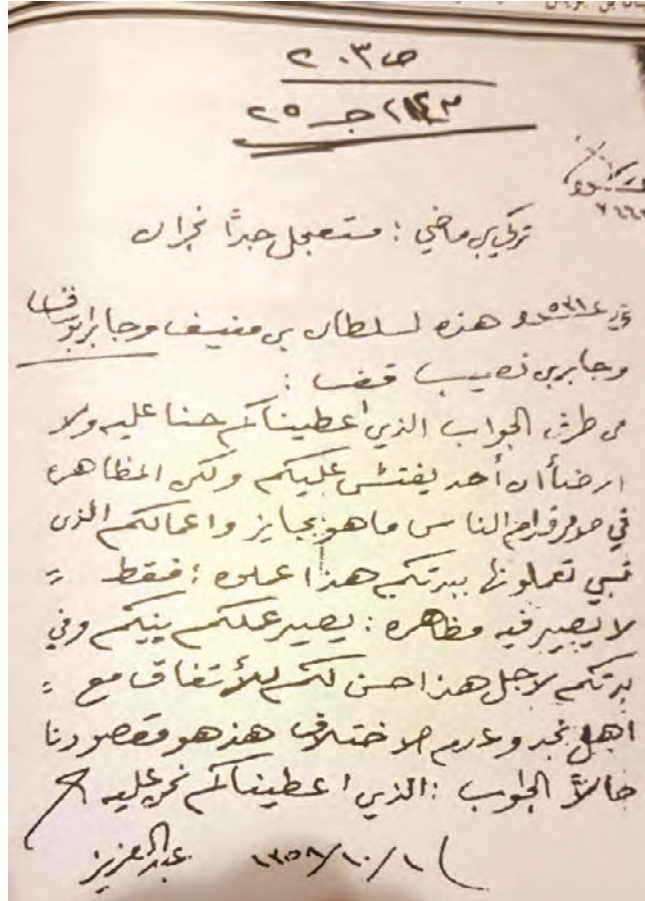 ص ٢٠٣
ج ٢٥
تركي بن ماضي : مستعجل جداً نجران
هذه لسلطان بن منيف وجابر ابو
وجابر بن نصيب فقط :
من طرف الجواب الذي اعطيناكم حنا عليه ولا
ارضا أن أحد يفتش عليكم ولكن المظاهره
في قدام الناس ما هو بجايز واعمالكم الذي
تبي تعملونها ببدتكم هذا عملوه ؛ فقط =
لا يصير فيه مظاهره : يصير عملكم بينكم وفي
بدتكم لاجل هذا احسن لكم للأتفاق مع =
اهل نجد وعدم الاختلاف هذا هو مقصودنا
حالاً الجواب : الذي اعطيناكم نحن عليه
١٣٥٨/١٠/١ عبدالعزيز